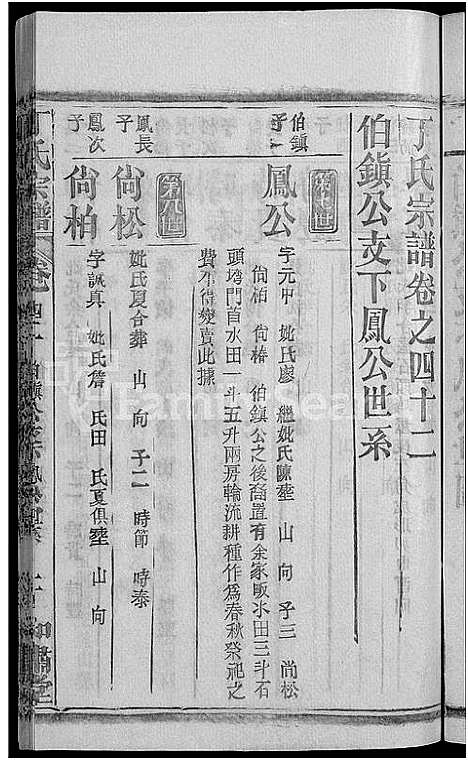 丁氏宗譜卷之四十二
伯鎮公支下鳳公世系
第七世
伯鎮
子一
鳳公
字元中 妣氏廖 繼妣氏陳塟 山 向 子三 尚松
尚柏 尚椿 伯鎮公之後裔置有余家畈水田三斗石
頭塆門首水田一斗五升兩房輪流耕種作為春秋祭祀之
費不得變賣此據
第八世
鳳長
子
尚松
妣氏夏合葬 山 向 子二 時節 時泰
鳳次
子
尚柏
字誠真 妣氏詹 氏田 氏夏俱塟 山 向
丁氏宗譜 卷四十 伯鎮公支下鳳公世系